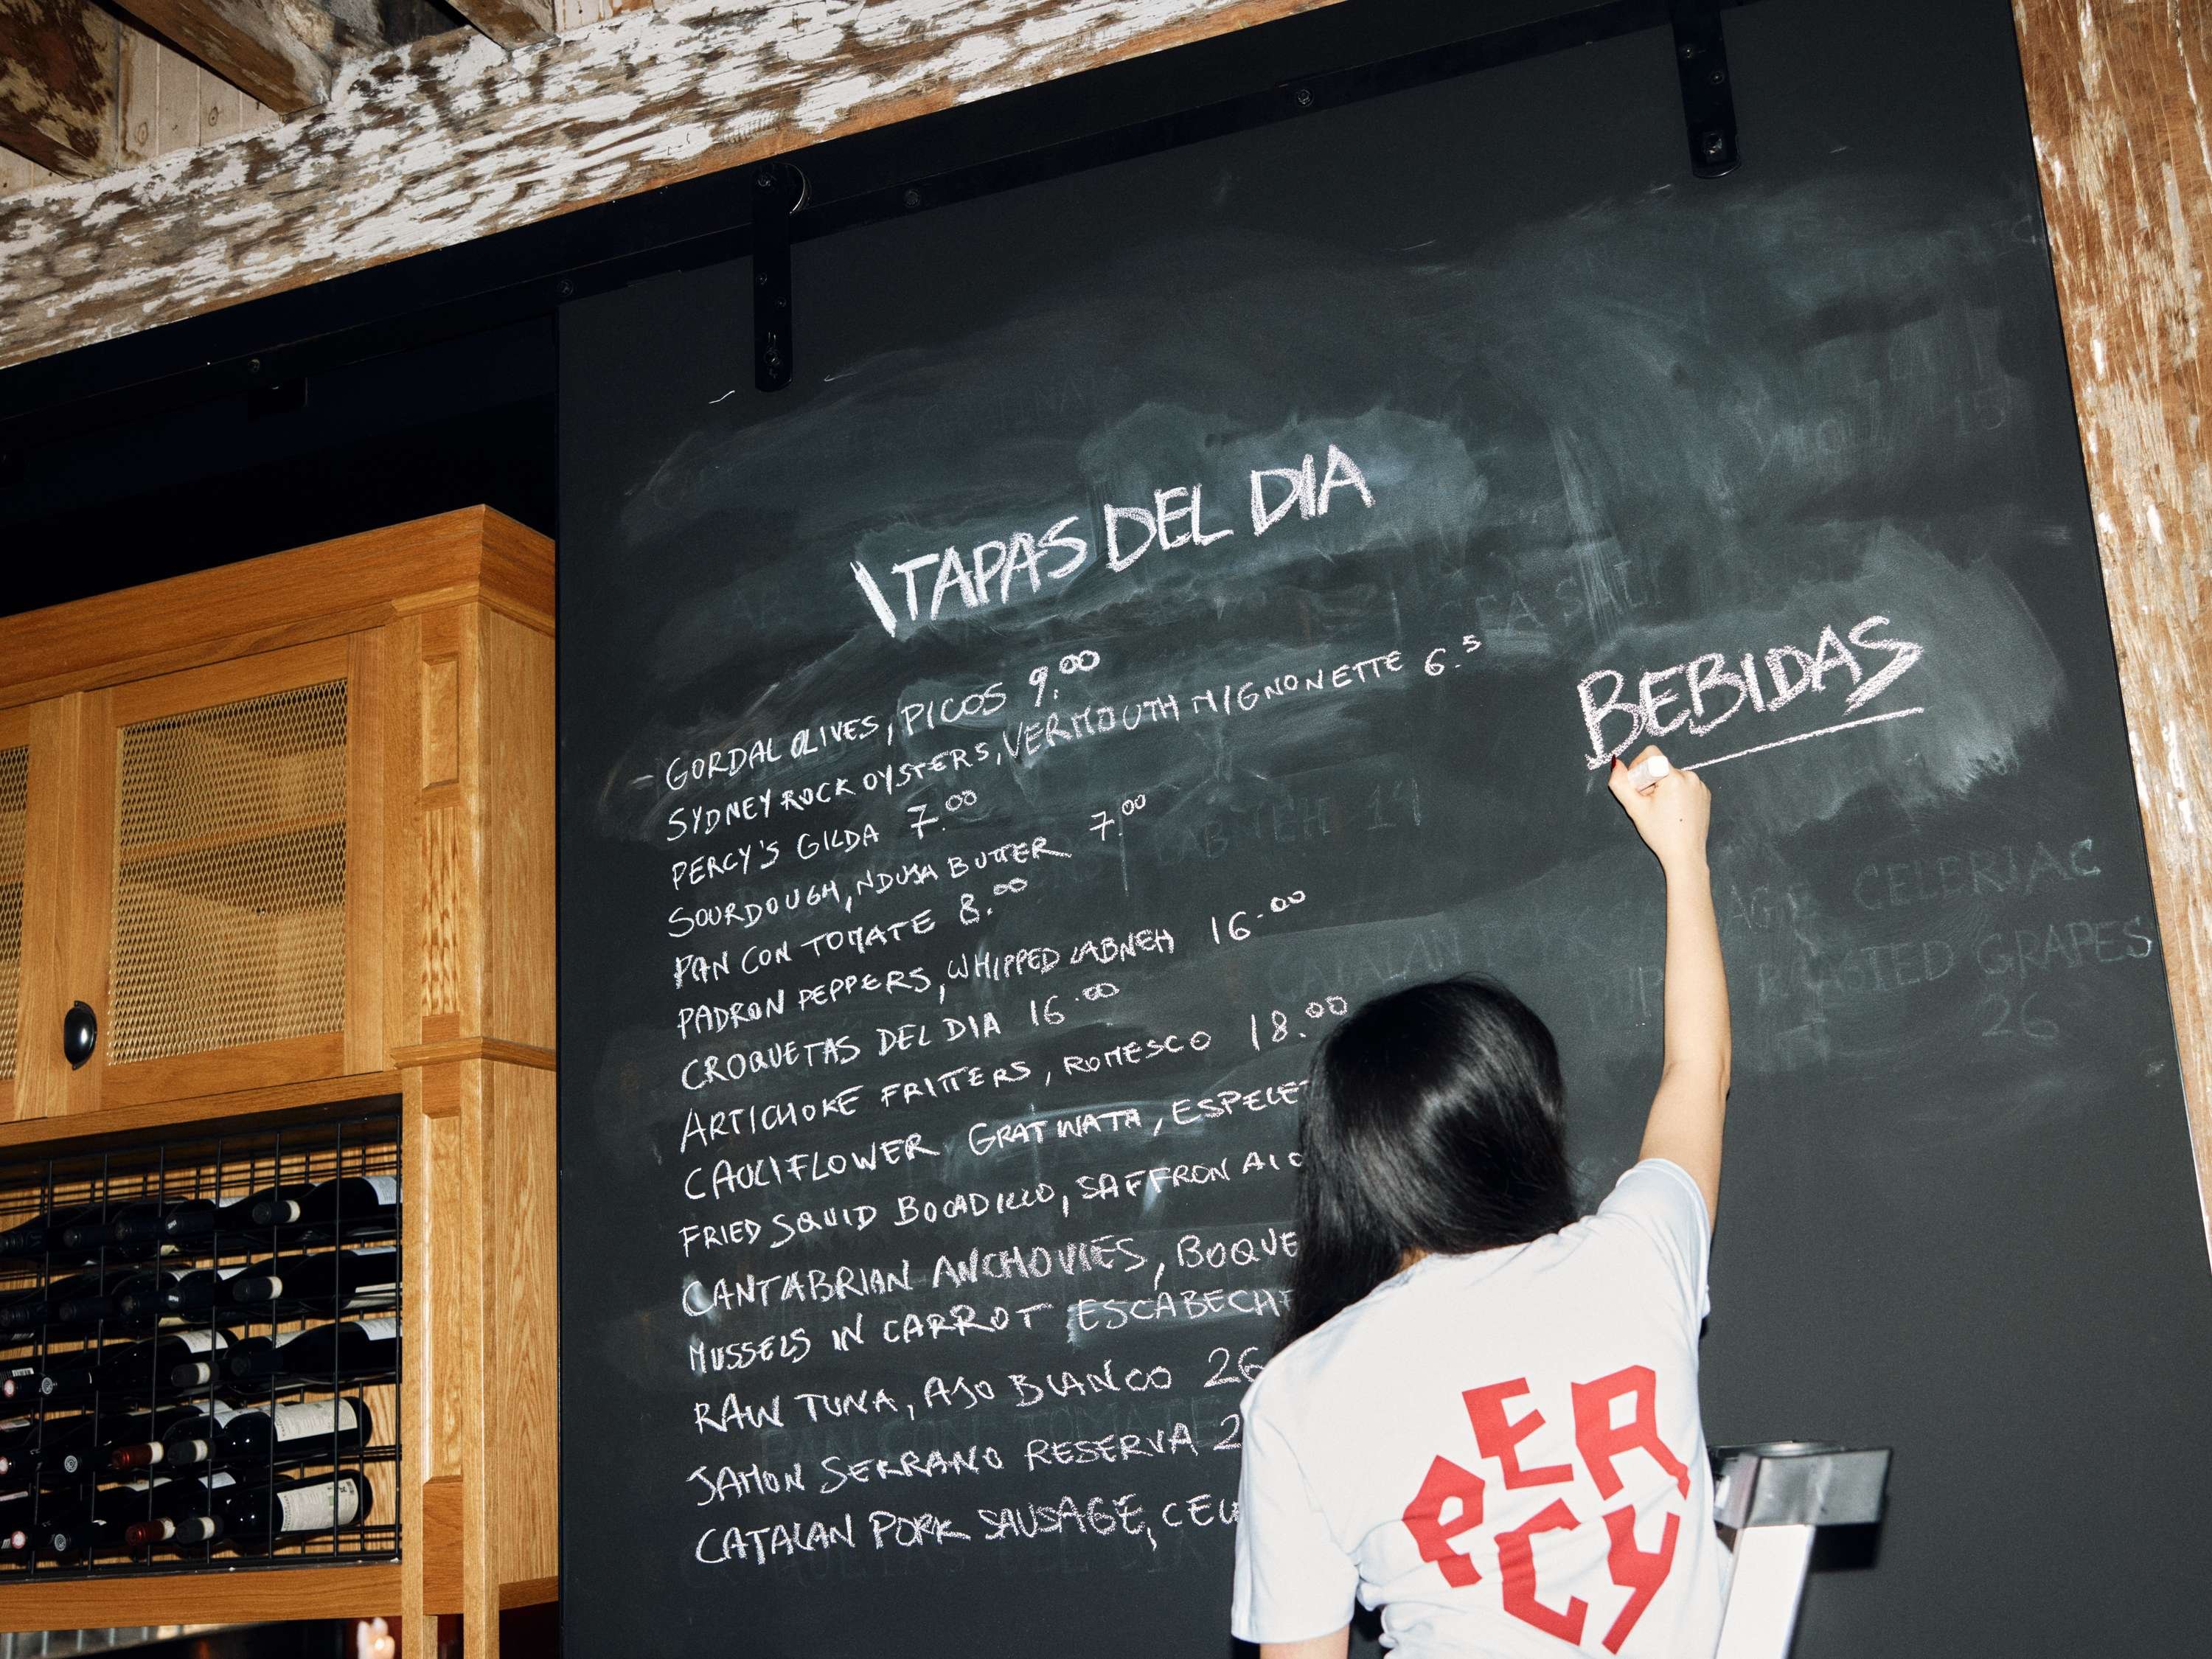 TAPAS DEL DIA
- GORDAL OLIVES, PICOS 9.00
SYDNEY ROCK OYSTERS, VERMOUTH MIGNONETTE 6.5
PERCY'S GILDA 7.00
SOURDOUGH, NDUJA BUTTER 7.00
PAN CON TOMATE 8.00
PADRON PEPPERS, WHIPPED LABNEH 16.00
CROQUETAS DEL DIA 16.00
ARTICHOKE FRITTERS, ROMESCO 18.00
CAULIFLOWER
FRIED SQUID BOCADILLO, SAFFRON
CANTABRIAN ANCHOVIES,
MUSSELS IN CARROT
RAW TUNA, AJO BLANCO 26
JAMON SERRANO RESERVA
CATALAN PORK SAUSAGE,
BEBIDAS
CELERIAC
ROASTED GRAPES
26
PERCY